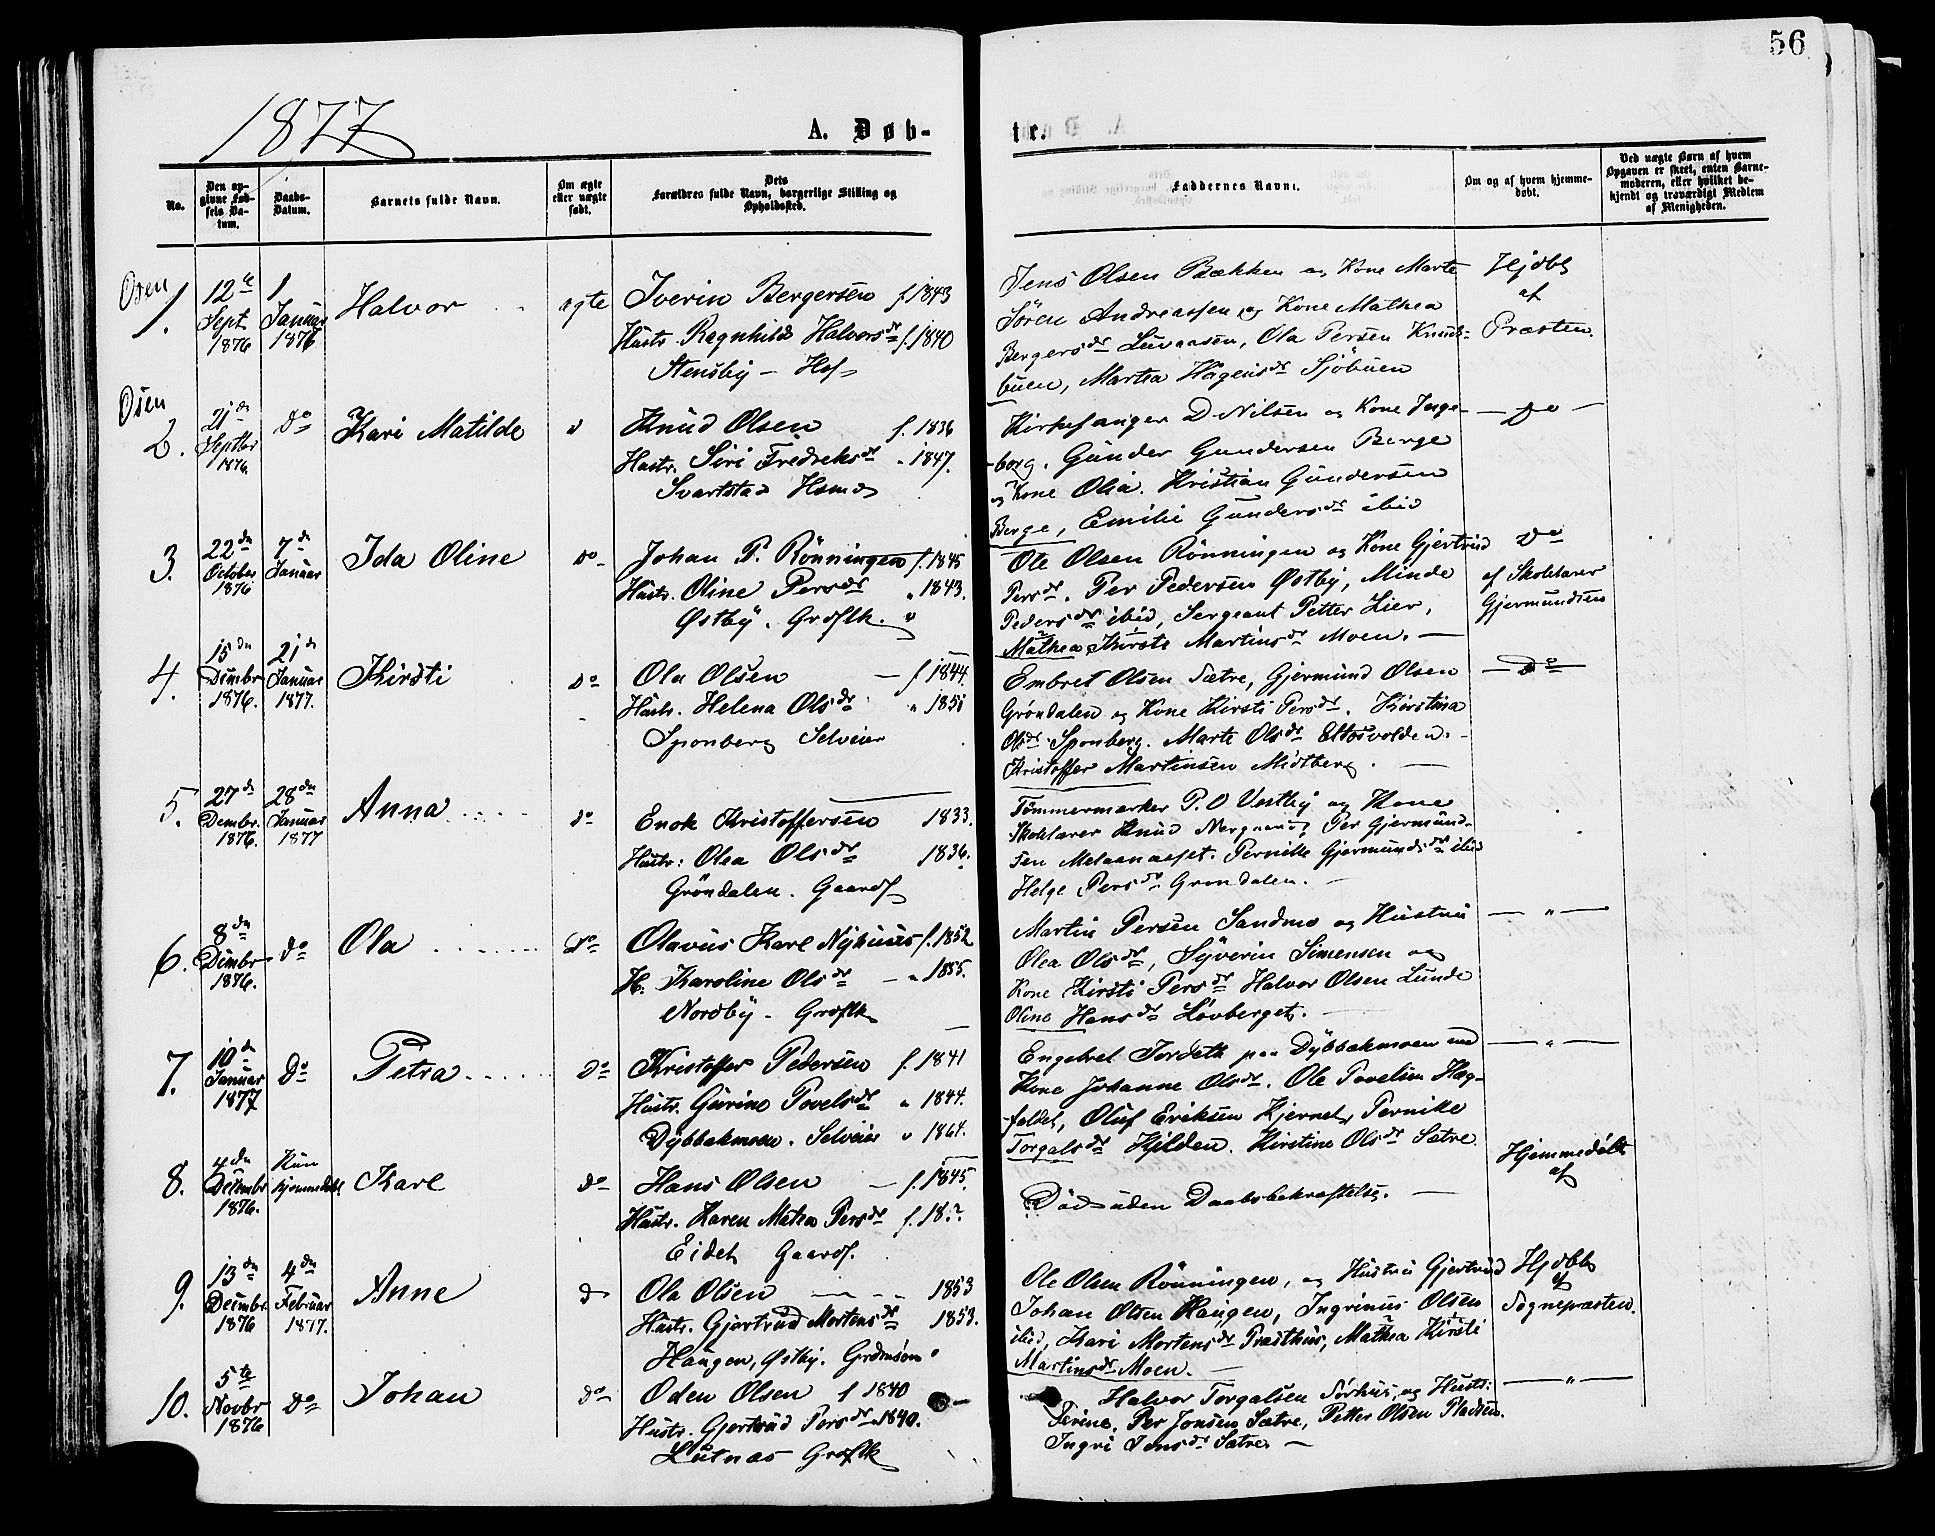 56
1877
A. Døb-
tr.
No.
Den op-
givne Fød-
sels Da-
tum.
Daabs-
Datum.
Barnets fulde Navn.
Om ægte
eller uægte
født.
Dets
Forældres fulde Navn, borgerlige Stilling og
Opholdssted.
Faddernes Navne.
Om og af hvem hjemme-
døbt.
Ved uægte Børn af hvem
Opgaven er skeet, enten Barne-
moderen, eller hvilket be-
kjendt og troværdigt Medlem
af Menigheden.
Osen
1.
12te
Sept
1876
1
Januar
1876
Halvor
ægte
Iverin Bergersen f. 1843
Hustr. Ragnhild Halvorsdr f. 1840
Stensby — Hof
Jens Olsen Bækken og Kone Marte
Sören Andreassen og Kone Mathea
Bergersdr Ola Persen
buen, Martea Hagensdr Sjöbuen
Hjdbt
af
Præsten.
Osen
2.
21de
Septbr
1876
Do
Kari Matilde
d
Knud Olsen f. 1836
Hustr. Siri Fredreksdr " 1847.
Svartstad
Kirkesanger D. Nilsen og Kone Inge-
-borg. Gunder Gundersen Berge
og Kone Olia. Kristian Gundersen
Berge, Emilie Gundersdr ibid
— Do —
3.
22de
October
1876
7de
Januar
Ida Oline
Do
Johan P. Rönningen f. 1845
Hustr. Oline Persdr " 1843.
Østby. Grdflk. "
Ole Olsen Rönningen og Kone Gjertrud
Persdr. Per Pedersen Østby, Minde
Pedersdr ibid, Sergeant Petter Lier,
Mathea Kirsti Martinsdr Moen. —
Do
af Skolelærer
Gjermundsen
4.
15de
Dcmbr
1876.
21de
Januar
1877.
Kirsti
Do
Ola Olsen — f 1844.
Hustr. Helena Olsdr " 1851
Sponberg Selveier
Embret Olsen Sætre, Gjermund Olsen
Gröndalen og Kone Kirsti Persdr. Kirstina
Olsdr Sponberg. Marte Olsdr Eltosvolden.
Kristoffer Martinsen Midtberg. —
— Do —
5.
27de
Dcmbr.
1876.
28de
Januar
1877
Anna
do
Enok Kristoffersen 1833.
Hustr: Olea Olsdr 1836.
Gröndalen. Gaardf
Tømmermærker P. O Vestby og Kone
Skolelærer Knud Per Gjermund-
sen Pernille Gjermundsdr ibid
Helge Persdr Grøndalen. —
6.
8de
Dcmbr
1876.
do
Ola
Do
Olavus Karl Nyhuus f. 1852
H. Karoline Olsdr — " 1855.
Nordby. Grdflk
Martin Persen Sandmo og Hustru
Olea Olsdr, Syverin Simensen og
Kone Kirsti Persdr Halvor Olsen Lunde
Oline Hansdr Lövberget. —
— " —
7.
10de
Januar
1877
Do
Petra
Do
Kristoffer Pedersen f. 1841
Hustr. Gurine Povelsdr " 1844.
Dybbakmoen. Selveier " 1864.
Engebret Tordeth paa Dybbakmoen med
Kone Johanne Olsdr. Ole Povelsen Hag-
-faldet, Oluf Eriksen Kjernet, Pernille
Torgalsdr Kjilden. Kirstine Olsdr Sætre
— " —
8.
4de
Decembr
1876.
Kun
hjemmedøbt
Karl
do
Hans Olsen — f. 1845.
Hustr. Karen Matea Persdr f. 18??
Eidet Gaardf.
Död uden Daabsbekræftelse. —
Hjemmedöbt
af
9.
13de
Decmbr
1876
4de
Februar
1877.
Anne
d
Ola Olsen 1853
Hustr. Gjertrud Mortensdr 1853.
Haugen, Østby. Grdmsøn "
Ole Olsen Rönningen, og Hustru Gjertrud
Johan Olsen Haugen, Ingrinus Olsen
ibid, Kari Mortensdr Præsthus, Mathea Kirsti
Martinsdr Moen. —
Hjdbt
af
Sognepræsten.
10.
5te
Novbr
1876
Do
Johan
do
Oden Olsen f 1840
Hustr. Gjertrud Persdr " 1840.
Lutnæs Grdflk
Halvor Torgalsen Sørhus, og Hustr:
Per Jonsen Sætre, Petter Olsen Pladsen.
Ingri Jonsdr Sætre —
— " —